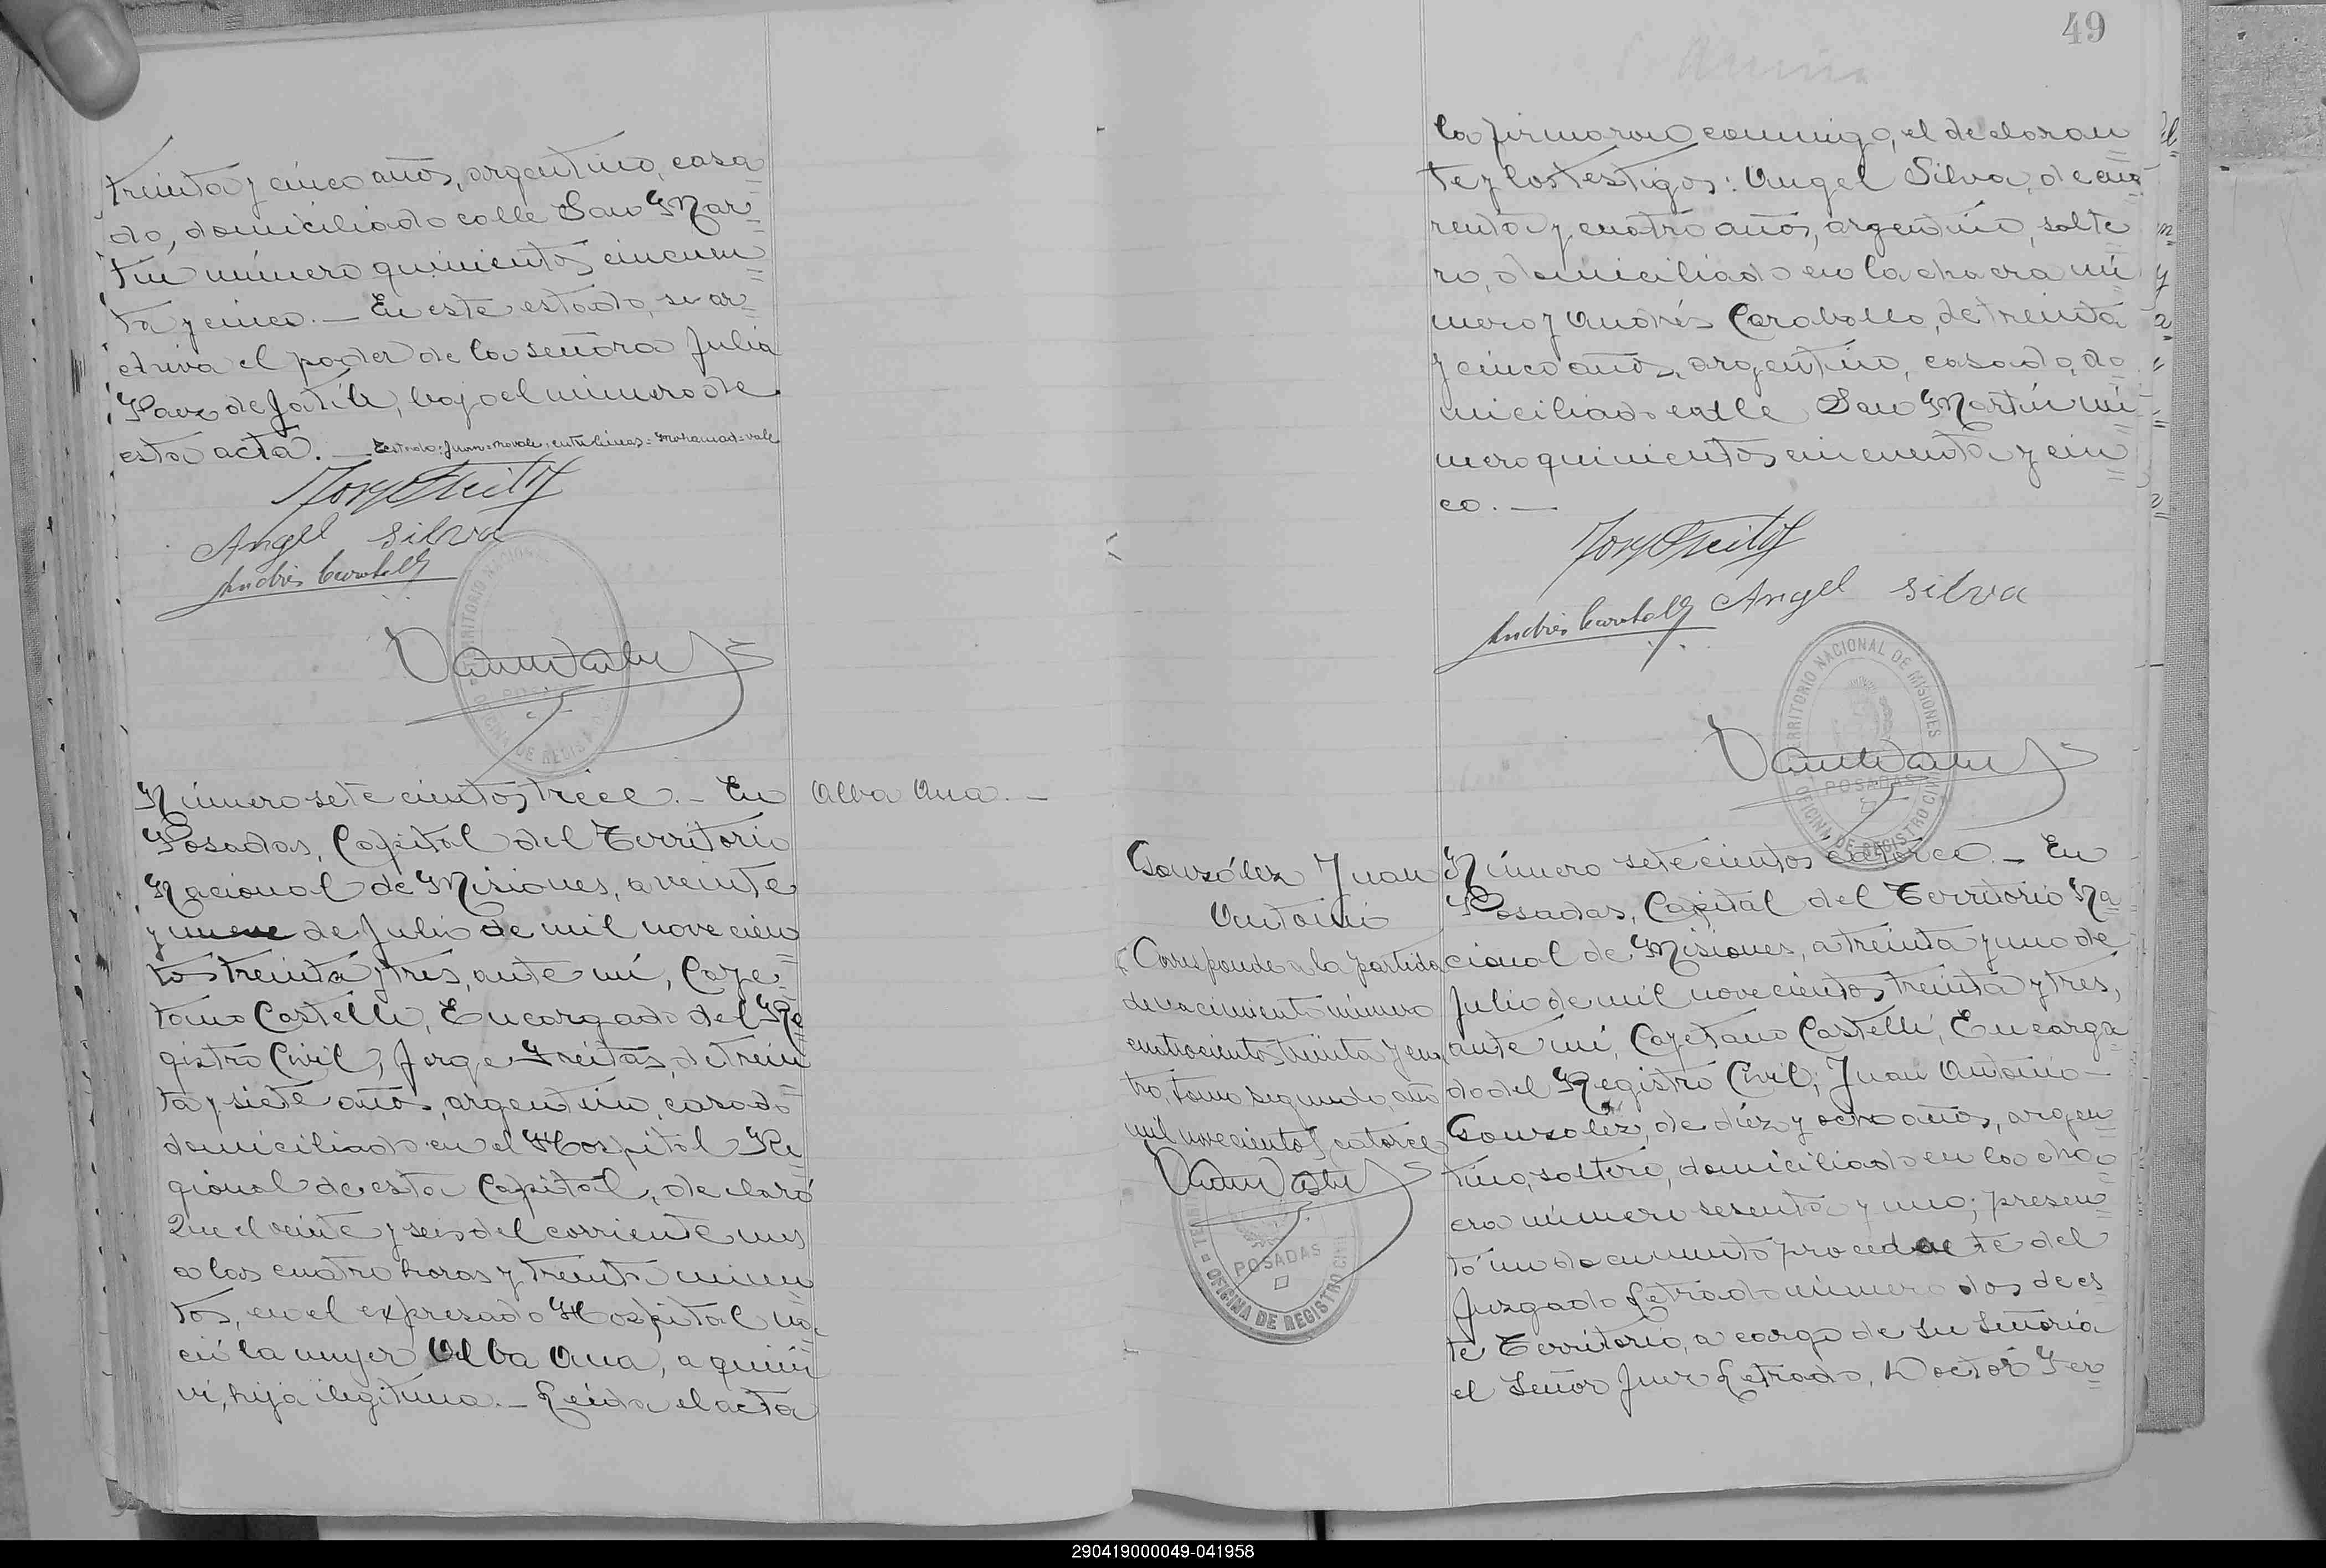 treinta y cinco años, argentino, casa=
do, domiciliado calle San Mar=
tín número quinientos cincuen=
ta y cinco.— En este estado, se ar=
chiva el poder de la señora Julia
de Jatib, bajo el número de
esta acta.— Testado: Juan=no vale; entre líneas=Mohamad=vale
Angel Silva
Andrés Caraballo
Número setecientos trece.— En
Posadas, Capital del Territorio
Nacional de Misiones, a veinte
y nueve de Julio de mil novecien
tos treinta y tres, ante mí, Caye=
tano Castelli, Encargado del Re
gistro Civil, Jorge Freitas, de trein
ta y siete años, argentino, casado
domiciliado en el Hospital Re
gional de esta Capital, declaró
Que el veinte y seis del corriente mes
a las cuatro horas y treinta minu
tos, en el expresado Hospital na=
ció la mujer Alba Ana, a quien
ví, hija ilegitima.— Leída el acta
Alba Ana.—
49
la firmaron conmigo, el declaran
te y los testigos: Angel Silva, de cua
renta y cuatro años, argentino, solte
ro, domiciliado en la chacra nú
mero y Andrés Caraballo, de treinta
y cinco años, argentino, casado, do
miciliado calle San Martín nú
mero quinientos cincuenta y cin
co.—
Andrés Caraballo Angel Silva
TERRITORIO NACIONAL DE MISIONES
POSADAS
OFICINA DE REGISTRO CIVIL
González Juan
Antonio
Corresponde a la partida
de nacimiento número
cuatrocientos treinta y cua
tro, tomo segundo, año
mil novecientos catorce
POSADAS
OFICINA DE REGISTRO CIVIL
Número setecientos catorce.— En
Posadas, Capital del Territorio Na
cional de Misiones, a treinta y uno de
Julio de mil novecientos treinta y tres,
ante mí, Cayetano Castelli, Encarga
do del Registro Civil; Juan Antonio—
González, de diéz y ocho años, argen
tino, soltero, domiciliado en la cha=
cra número sesenta y uno; presen
tó un documento procedente del
Juzgado Letrado número dos de es
te Territorio, a cargo de Su Señoría
el Señor Juez Letrado, Doctor Fer
290419000049-041958